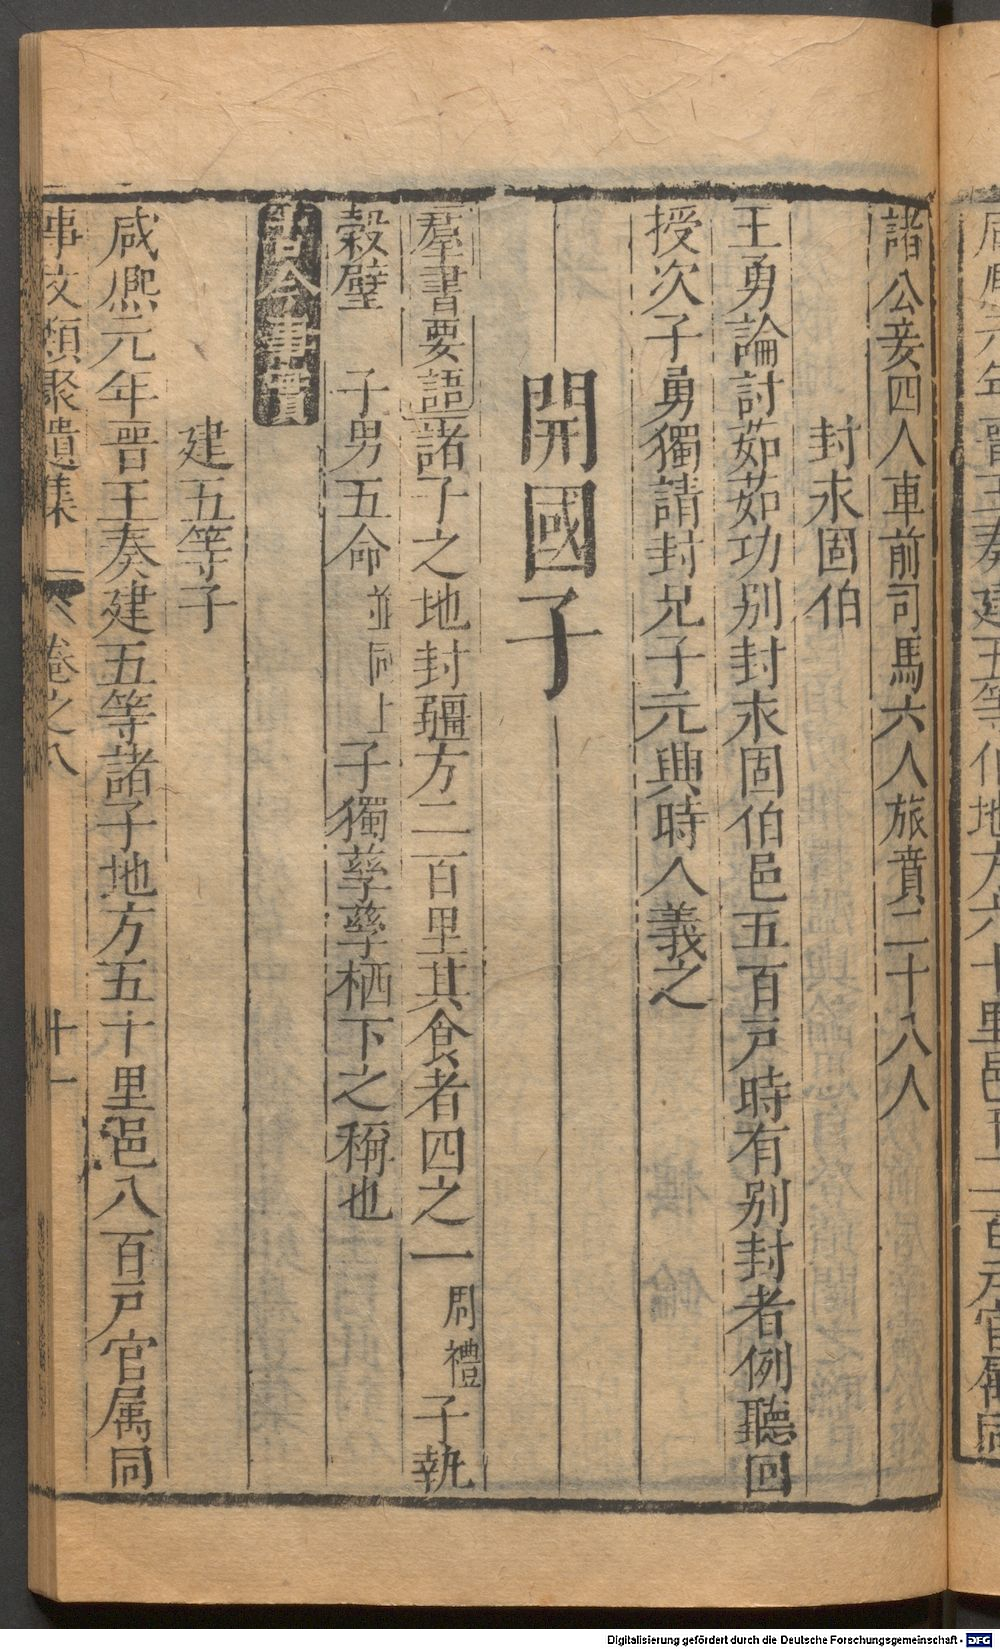 諸公妾四人車前司馬六人旅賁二十八人
封求固伯
王勇論討茹茹功別封求固伯邑五百戸時有別封者例聽回
授次子勇獨請封兄子元興時人義之
開國子
羣書要語諸子之地封疆方二百里其食者四之一周禮子執
穀璧 子男五命並同上子獨孳孳栖下之稱也
古今事實
建五等子
咸熙元年晉王奏建五等諸子地方五十里邑八百戸官属同
事文類聚遺集 卷之八 十一
Digitalisierung gefördert durch die Deutsche Forschungsgemeinschaft - DFG